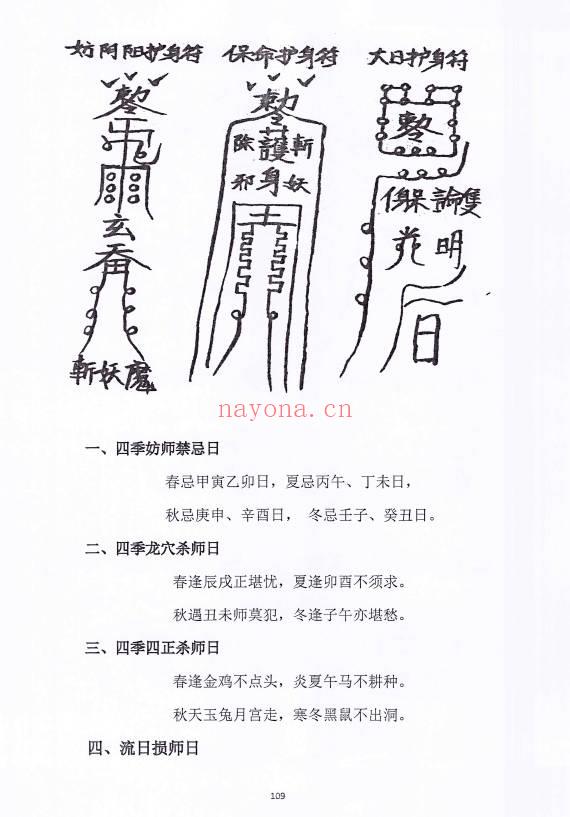 妨阴阳护身符 保命护身符 大日护身符
敕 敕 敕
護
除 斬
身
邪 妖
雨
玄
斬妖魔
明
日
nayona.cn
一、四季妨师禁忌日
春忌甲寅乙卯日，夏忌丙午、丁未日，
秋忌庚申、辛酉日， 冬忌壬子、癸丑日。
二、四季龙穴杀师日
春逢辰戌正堪忧，夏逢卯酉不须求。
秋遇丑未师莫犯，冬逢子午亦堪愁。
三、四季四正杀师日
春逢金鸡不点头，炎夏午马不耕种。
秋天玉兔月宫走，寒冬黑鼠不出洞。
四、流日损师日
109